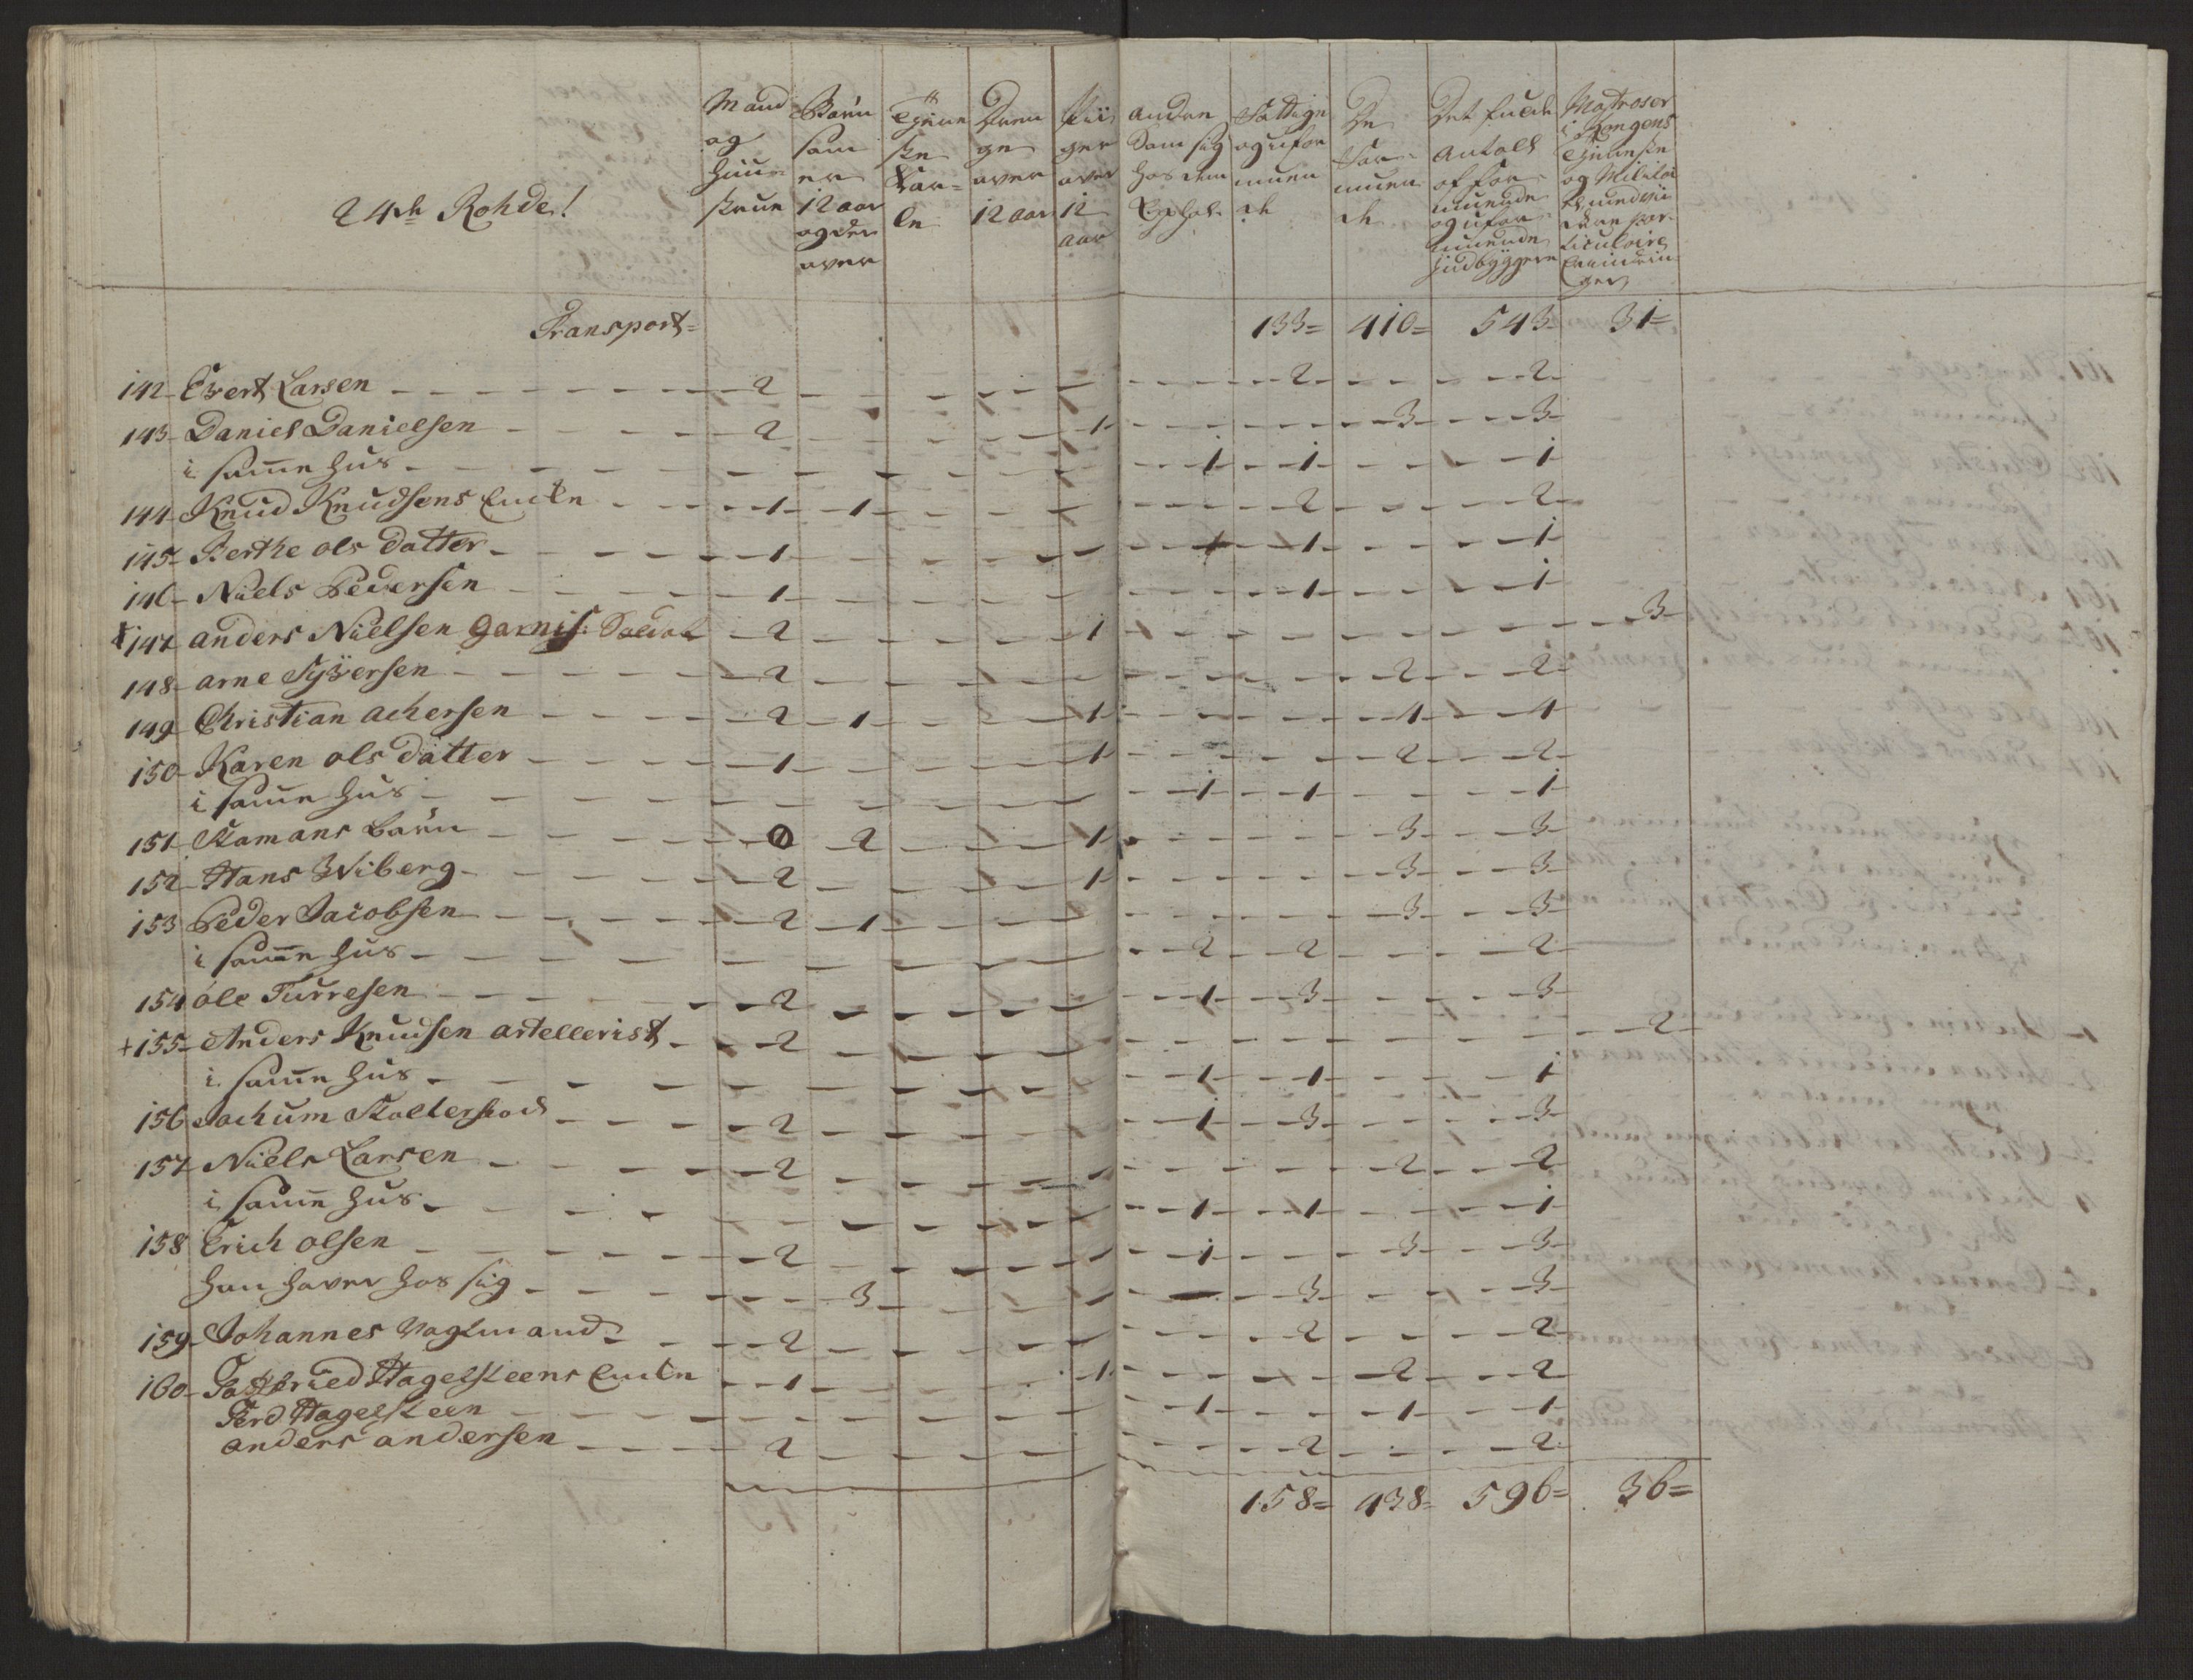 24de Rohde!
Mand og Huustrue
Børn som er 12 aar og der over
Tjeneste Karle
Drenge over 12 aar
Piiger over 12 aar
Andre Som sig hos dem Opholde
Fattige og uformuende
De Formuende
Det fulde Antall af formuende og uformuende Indbyggere
Matroser i Kongens Tjeneste og Militai
Transport= 133= 410= 543= 31=
142- Evert Larsen - 2 - - - - - 2 - 2
143- Daniel Danielsen - 2 - - - 1 - - 3 - 3
i samme Huus - - - - - 1 - 1 - 1
144- Knud Knudsens Encke - 1 - 1 - - - 2 - 2
145- Berthe ols datter - 1 - - - 1 - 1 - 1
146- Niels Pedersen - 1 - - - - 1 - 1
+147 anders Nielsen Garnis: Soldat - 2 - - - 1 - - - 3
148- arne Syversen - 2 - - - - - 2 - 2
149- Christian achersen - 2 - 1 - - 1 - - 4 - 4
150- Karen ols datter - 1 - - - 1 - - 2 - 2
i samme Huus - - - - - 1 - 1 - 1
151- Stamans Børn - 0 2 - - 1 - - 3 - 3
152- Hans Wiberg - 2 - - - 1 - - 3 - 3
153 Peder Jacobsen - 2 - 1 - - - - 3 - 3
i samme Huus - - - - - 2 - 2 - 2
154 ole Turresen - 2 - - - - 1 - 3 - 3
+155- Anders Knudsen artellerist - 2 - - - - - - - 2
i samme Huus - - - - - 1 - 1 - 1
156 Jochum Stoltershod - 2 - - - - 1 - 3 - 3
157 Niels Larsen - 2 - - - - - - 2 - 2
i samme Huus - - - - - 1 - 1 - 1
158 Erich olsen - 2 - - - - 1 - - 3 - 3
han haver hos sig - - 3 - - - - 3 - 3
159- Johannes Voglmand - 2 - - - - - 2 - 2
160- Gotfried Hagelsteens Encke - 1 - - - 1 - - 2 - 2
Ferd Hagelsteen - - - - - 1 - - 1 - 1
anders andersen - 2 - - - - - 2 - 2
158= 438= 596= 36=